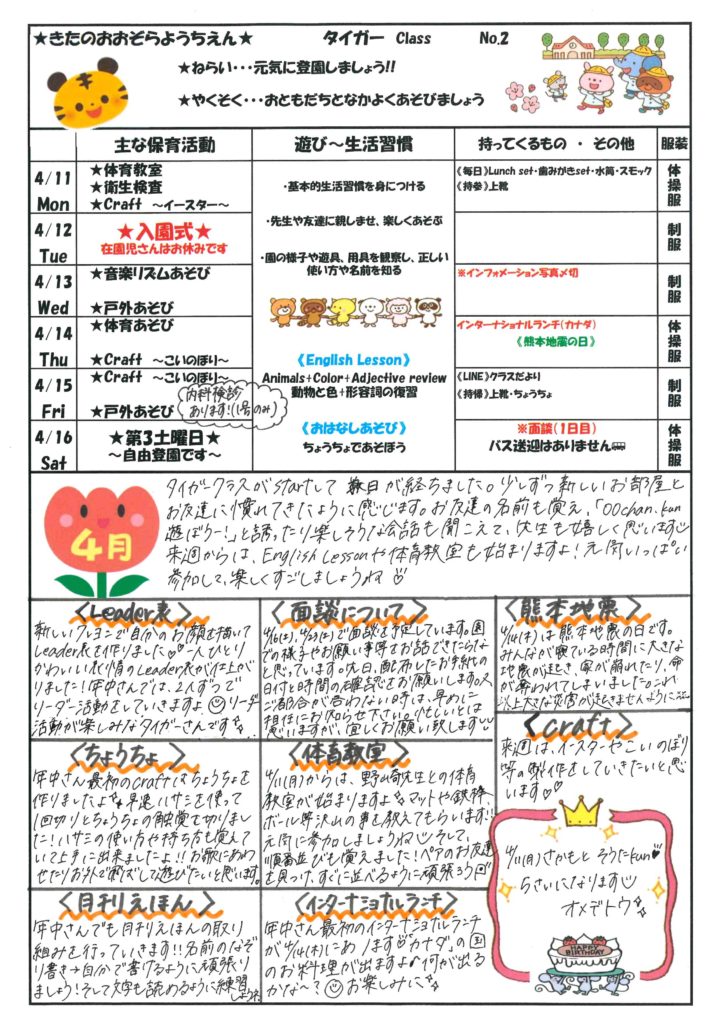 ★きたのおおぞらようちえん★ タイガー Class No.2
★ねらい・・・元気に登園しましょう!!
★やくそく・・・おともだちとなかよくあそびましょう
主な保育活動 遊び～生活習慣 持ってくるもの ・ その他 服装
4/11 Mon
★体育教室
★衛生検査
★Craft ～イースター～
《毎日》Lunch set・歯みがきset・水筒・スモック
《持参》上靴
体操服
4/12 Tue
★入園式★
在園児さんはお休みです
制服
4/13 Wed
★音楽リズムあそび
★戸外あそび
※インフォメーション写真〆切
制服
4/14 Thu
★体育あそび
★Craft ～こいのぼり～
インターナショナルランチ(カナダ)
《熊本地震の日》
体操服
4/15 Fri
★Craft ～こいのぼり～
★戸外あそび
内科検診
あります!(1号のみ)
《LINE》クラスだより
《持帰》上靴・ちょうちょ
制服
4/16 Sat
★第3土曜日★
～自由登園です～
※面談(1日目)
バス送迎はありません
体操服
・基本的生活習慣を身につける
・先生や友達に親しませ、楽しくあそぶ
・園の様子や遊具、用具を観察し、正しい
使い方や名前を知る
《English Lesson》
Animals+Color+Adjective review
動物と色+形容詞の復習
《おはなしあそび》
ちょうちょであそぼう
4月
タイガークラスがstartして 数日が経ちました。少しずつ新しいお部屋と
お友達に慣れてきたように感じます。お友達の名前も覚え、「〇〇chan.kun
遊ぼうー!」と誘ったり楽しそうな会話も聞こえて、先生も嬉しく思います
来週からは、English Lessonや体育教室も始まりますよ!元気いっぱい
参加して、楽しくすごしましょうね
〈Leader表〉
新しいクレヨンで自分のお顔を描いて
Leader表を作りました♡一人ひとり
かわいい表情のLeader表が仕上が
りました!年中さんでは、2人ずつで
リーダー活動をしていきますよ リーダー
活動が楽しみなタイガーさんです
〈面談について〉
4/16(土)、4/23(土)で面談を予定しています。園
での様子やお願い事等お話できたらな
と思っています。先日、配布したお手紙の
日付と時間の確認をお願いします。又
ご都合が合わない時は、早めに
担任にお知らせ下さい。忙しいとは
思いますが、宜しくお願い致します
〈熊本地震〉
4/14(木)は熊本地震の日です。
みんなが寝ている時間に大きな
地震が起き、家が崩れたり、命
が奪われてしまいました。これ
以上大きな災害が起きませんように…
〈Craft〉
来週は、イースターやこいのぼり
等の製作をしていきたいと思
います♡♡
〈ちょうちょ〉
年中さん最初のcraftはちょうちょを
作りましたよ 早速ハサミを使って
1回切りとちょうちょの触覚を切りまし
た!ハサミの使い方や持ち方も覚えて
いて上手に出来ましたよ!!お歌にあわ
せたりお外で飛ばして遊びたいと思います。
〈体育教室〉
4/11(月)からは、野崎先生との体育
教室が始まりますよ マットや鉄棒、
ボール等沢山の事を教えてもらいます!!
元気に参加しましょうね そして、
順番並びも覚えました!ペアのお友達
を見つけ、すぐに並べるように頑張ろう
〈月刊えほん〉
年中さんでも月刊えほんの取り
組みを行っていきます!!名前のなぞ
り書き→自分で書けるように頑張り
ましょう!そして文字も読めるように練習
しようネ
〈インターナショナルランチ〉
年中さん最初のインターナショナルランチ
が4/14(木)にあります カナダの国
のお料理が出ますよ♪何が出る
かな～? お楽しみに
4/11(月)さかもと そうたkun♥
5さいになります
オメデトウ
HAPPY
BIRTHDAY